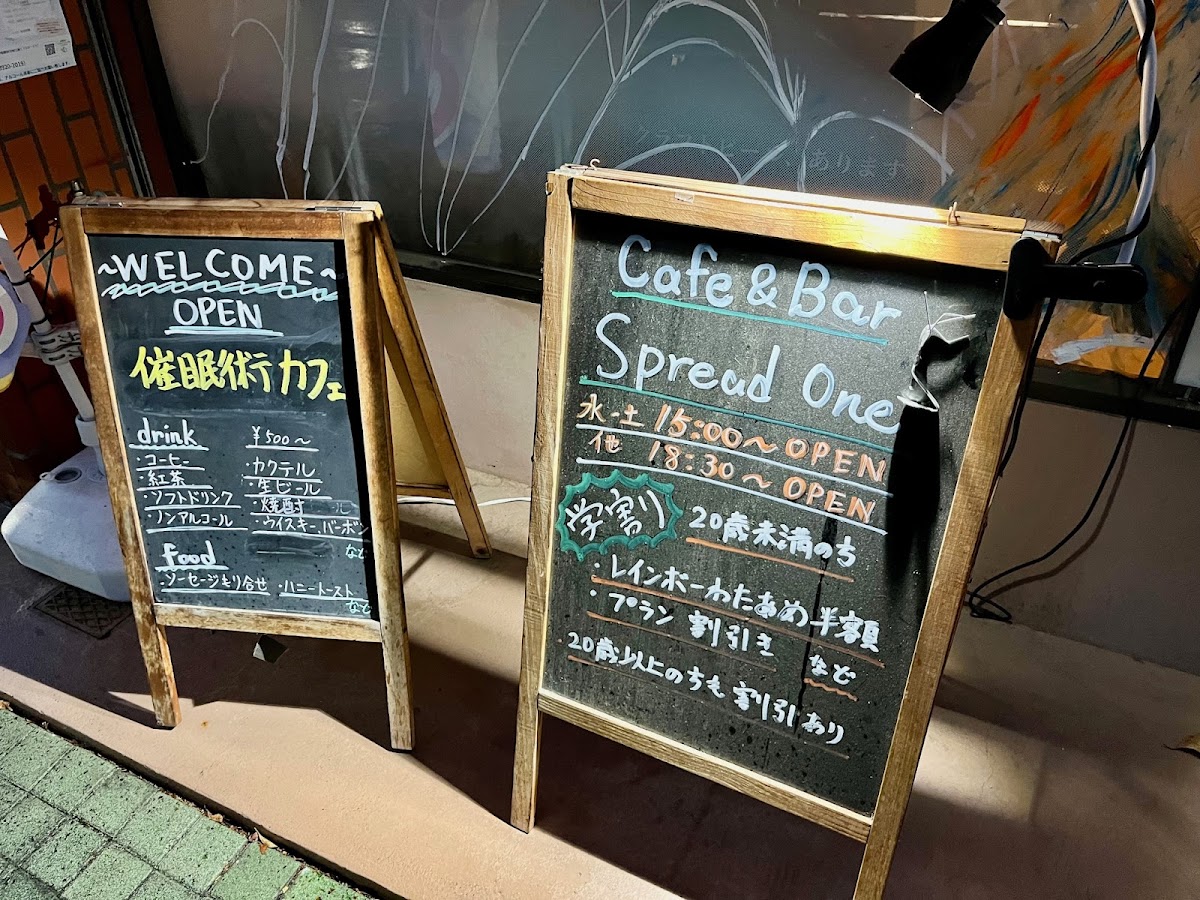 ~WELCOME~
OPEN
催眠術カフェ
drink
・コーヒー
・紅茶
・ソフトドリンク
・ノンアルコール
¥500~
・カクテル
・生ビール
・焼酎
・ウイスキー、バーボン
など
food
・ソーセージもり合せ
・ハニートースト
など
Cafe & Bar
Spread One
水-土 15:00~OPEN
他 18:30~OPEN
学割
20歳未満のち
・レインボーわたあめ半額
・プラン 割引き
など
・20歳以上のちも割引あり
あります